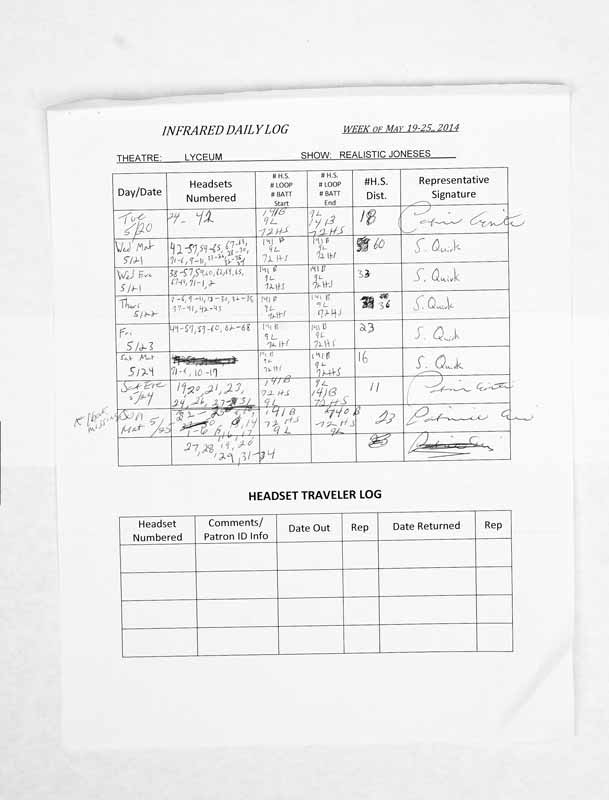 INFRARED DAILY LOG WEEK OF MAY 19-25, 2014
THEATRE: LYCEUM SHOW: REALISTIC JONESES
Day/Date Headsets Numbered # H.S. # LOOP # BATT Start # H.S. # LOOP # BATT End #H.S. Dist. Representative Signature
Tue 5/20 24-42 141B 9L 72HS 9L 141B 72HS 18
Wed Mat 5/21 42-57, 141 B 9L 72HS 141B 9L 72HS 60 S. Quick
Wed Eve 5/21 38-57, 71-1, 2 141 B 9L 72HS 141B 9L 72HS 33 S. Quick
Thurs 5/22 37-41, 42-43 141B 9L 72HS 141B 9L 72HS 36 S. Quick
Fri 5/23 44-57, 59-60, 62-68 141B 9L 72HS 141B 9L 72HS 23 S. Quick
Sat Mat 5/24 71-6, 10-17 141 B 9L 72HS 141B 9L 72HS 16 S. Quick
Sat Eve 5/24 19, 20, 21, 23, 24-26, 31 141B 72HS 9L 9L 141B 72HS 11
Mat 5/25 1-6, 9, 14 141B 72HS 9L 140B 72HS 9L 23
16, 17
27, 28, 19, 20
29, 31-34
HEADSET TRAVELER LOG
Headset Numbered Comments/ Patron ID Info Date Out Rep Date Returned Rep